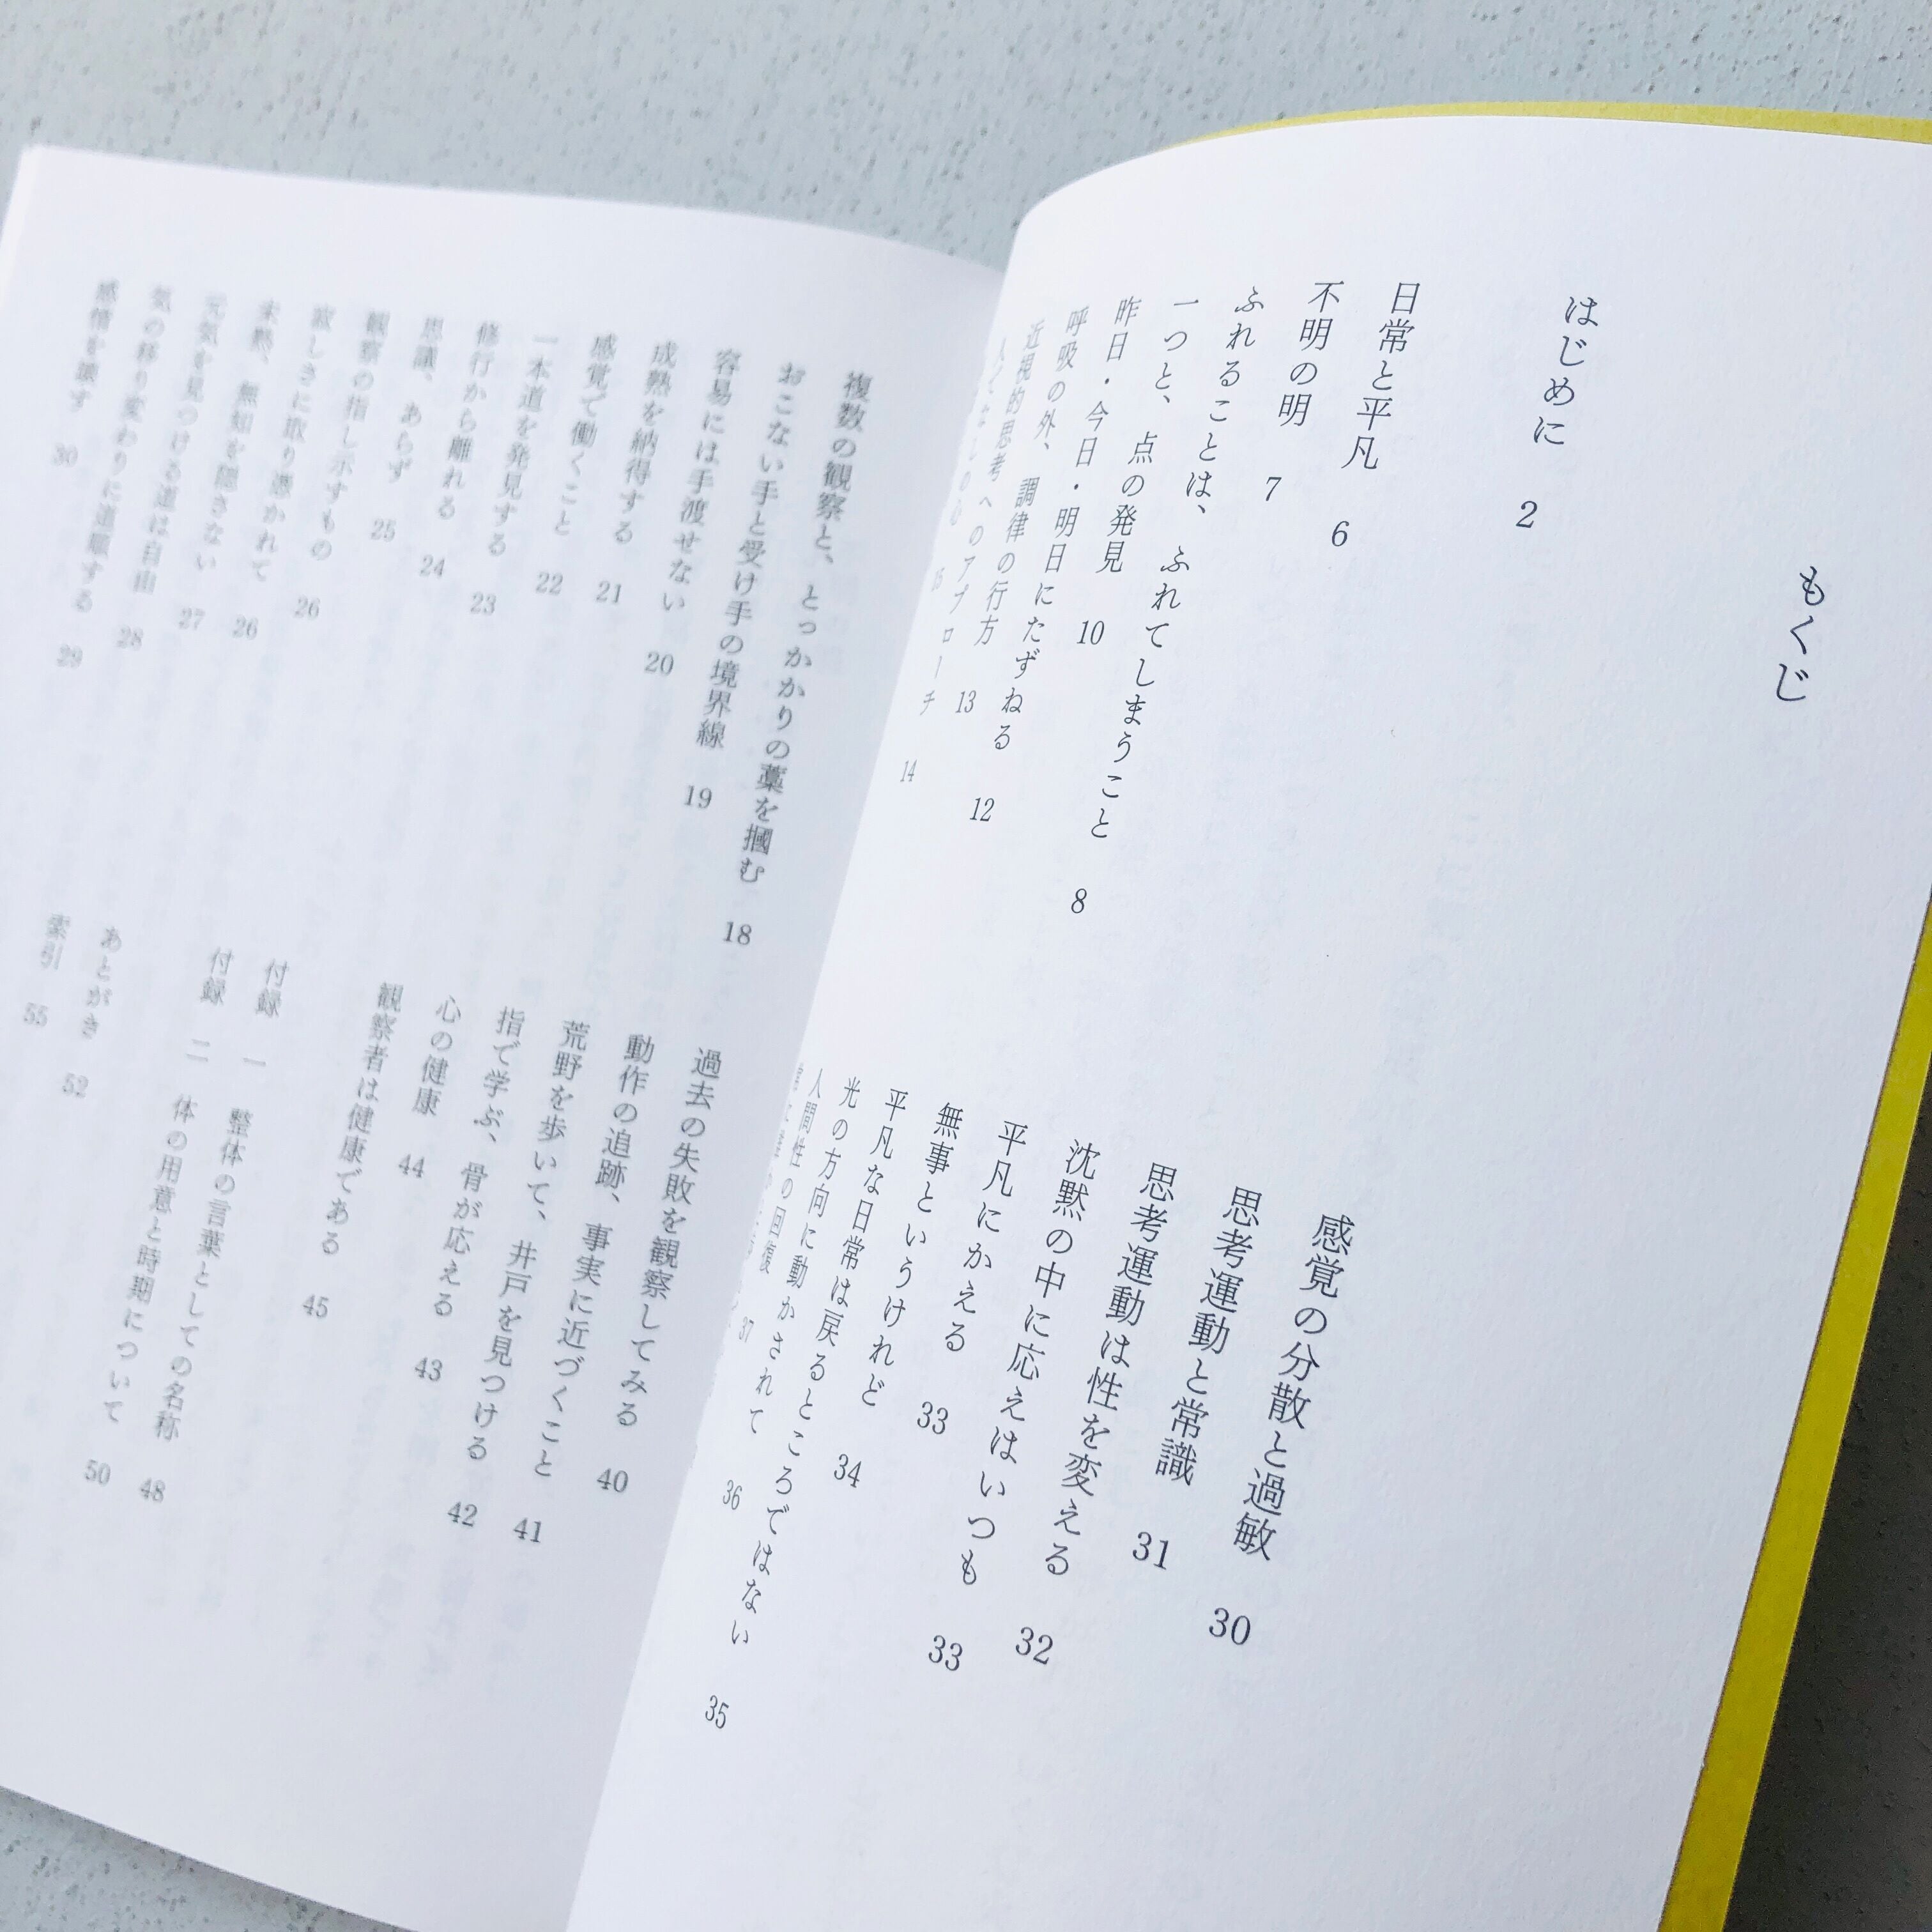 もくじ
はじめに 2
日常と平凡 6
不明の明 7
ふれることは、ふれてしまうこと 8
一つと、点の発見 10
昨日・今日・明日にたずねる 12
呼吸の外、調律の行方 13
近視的思考へのアプローチ 14
感覚の分散と過敏 30
思考運動と常識 31
思考運動は性を変える 32
沈黙の中に応えはいつも 33
平凡にかえる 33
無事というけれど 34
平凡な日常は戻るところではない 35
光の方向に動かされて 36
人間性の回復 37
複数の観察と、とっかかりの藁を摑む 18
おこない手と受け手の境界線 19
容易には手渡せない 20
成熟を納得する 21
感覚で働くこと 22
一本道を発見する 23
修行から離れる 24
思議、あらず 25
観察の指し示すもの 26
寂しさに取り憑かれて 26
未熟、無知を隠さない 27
元気を見つける道は自由 28
気の移り変わりに道順する 29
感情を壊す 30
過去の失敗を観察してみる 40
動作の追跡、事実に近づくこと 41
荒野を歩いて、井戸を見つける 42
指で学ぶ、骨が応える 43
心の健康 44
観察者は健康である 45
付録 一 整体の言葉としての名称 48
付録 二 体の用意と時期について 50
あとがき 52
索引 55